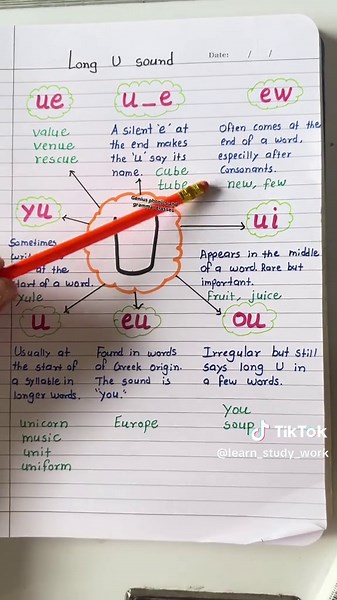 Long U sound
Date: / /
ue
value
venue
rescue
u_e
A silent 'e' at
the end makes
the 'u' say its
name. cube
tube
ew
Often comes at the
end of a word,
especilly after
Consonants.
new, few
yu
Sometimes
at the
start of a word.
yule
Genius phonics and
grammar classes
U
ui
Appears in the middle
of a word. Rare but
important.
Fruit, juice
u
Usually at
the start of
a syllable in
longer words.
unicorn
music
unit
uniform
eu
Found in words
of Greek origin.
The sound is
"you."
Europe
ou
Irregular but still
says long U in
a few words.
you
soup
TikTok
@learn_study_work